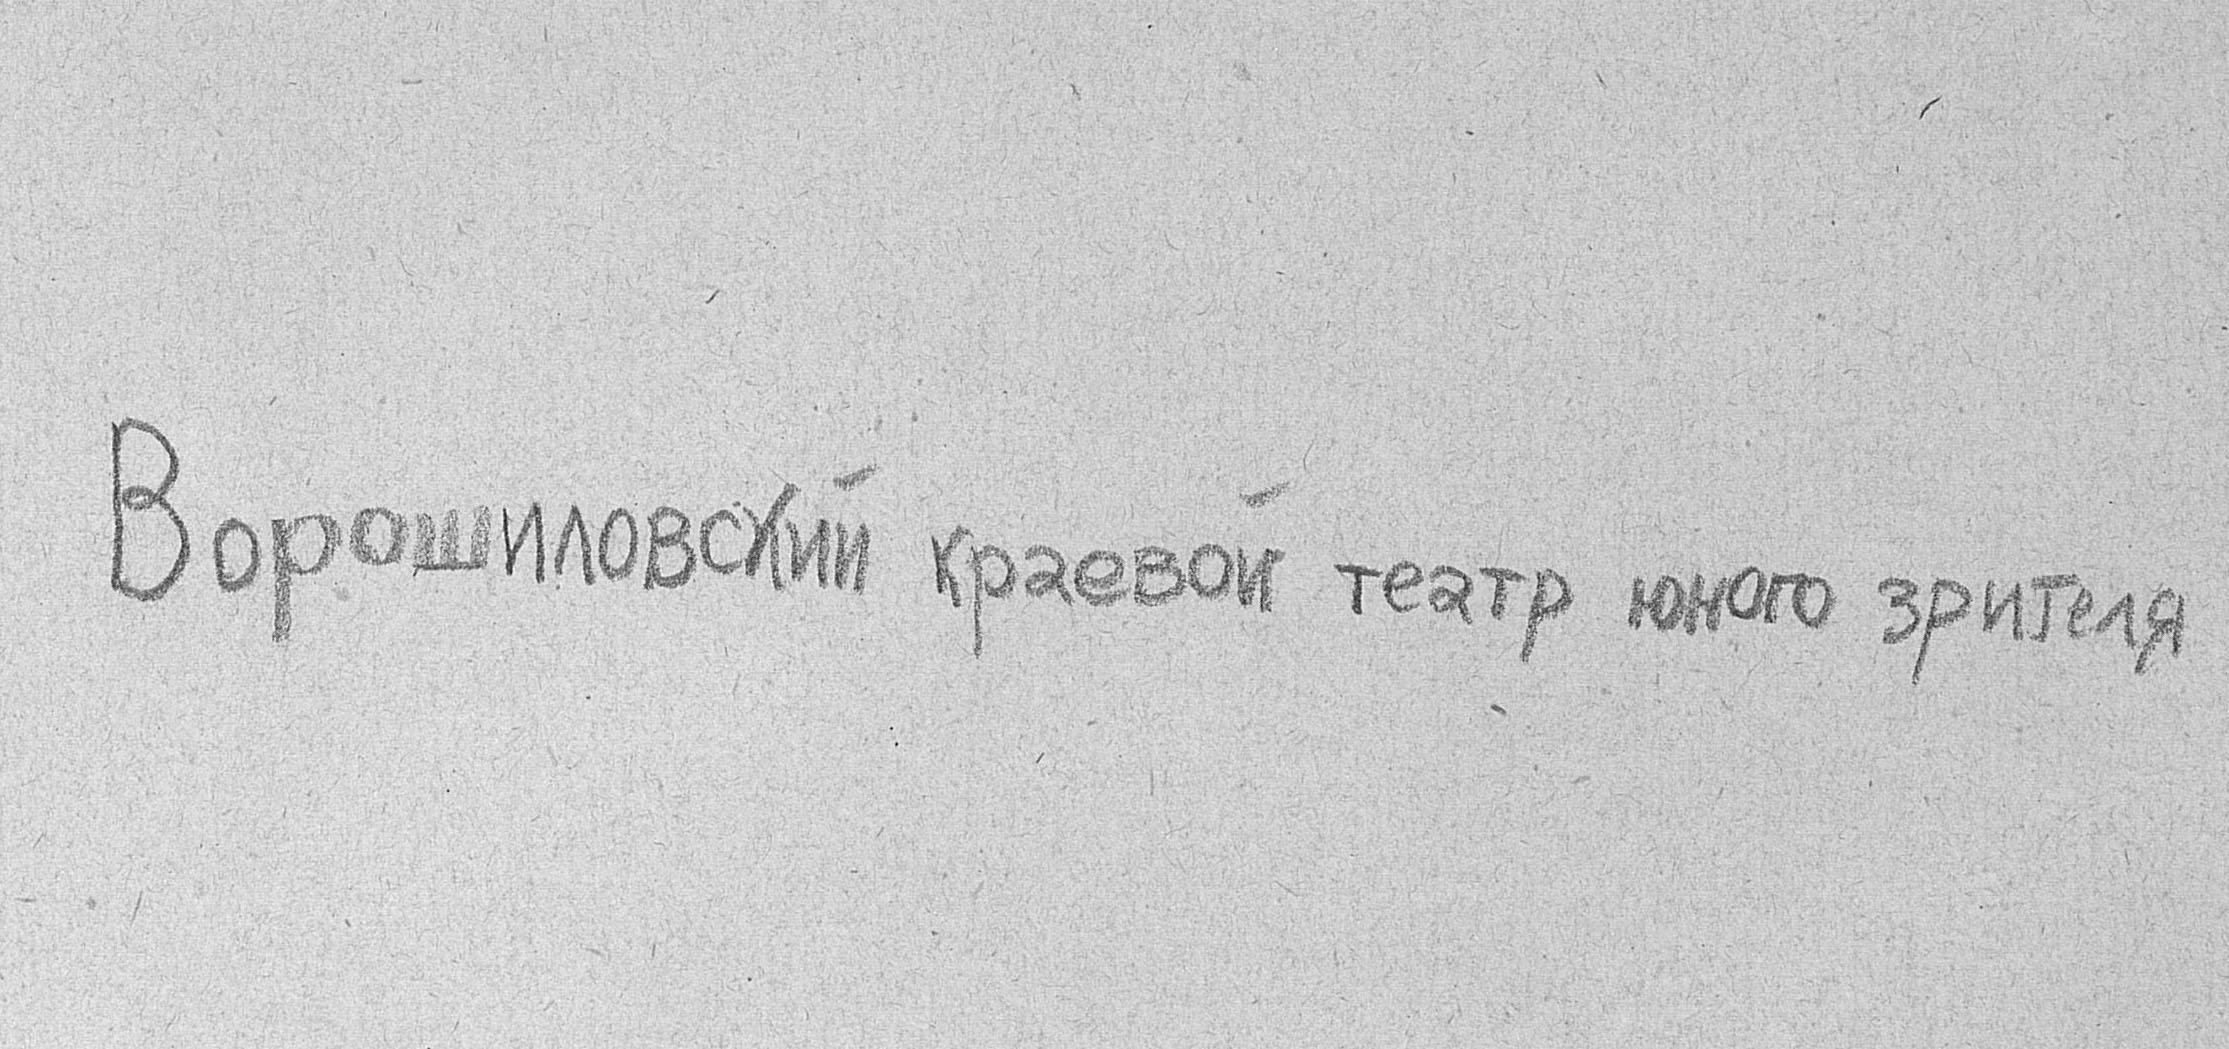 Ворошиловский краевой театр юного зрителя